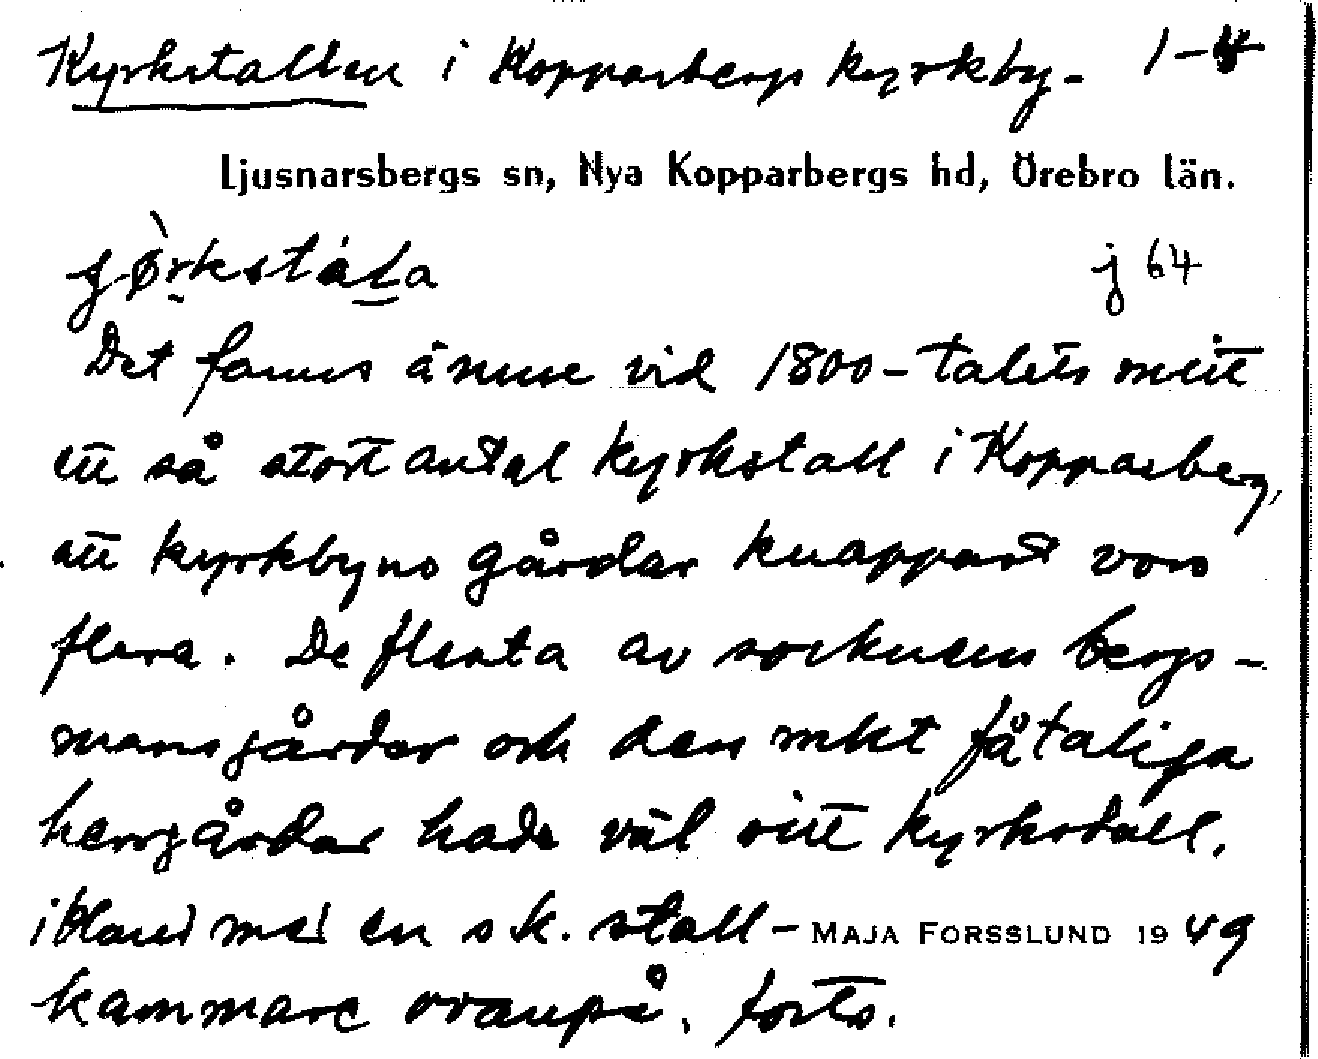 Kyrkstallen i Kopparbergs kyrkby- 1-4
Ljusnarsbergs sn, Nya Kopparbergs hd, Örebro län.
j 64
Det fanns ännu vid 1800-talets mitt
ett så stort antal kyrkstall i Kopparberg,
att kyrkbyns gårdar knappast voro
flera. De flesta av socknens bergs-
mansgårdar och den mkt fåtaliga
herrgårdar hade väl sitt kyrkstall,
ibland med en s.k. stall-
MAJA FORSSLUND 1949
kammare ovanpå. forts.